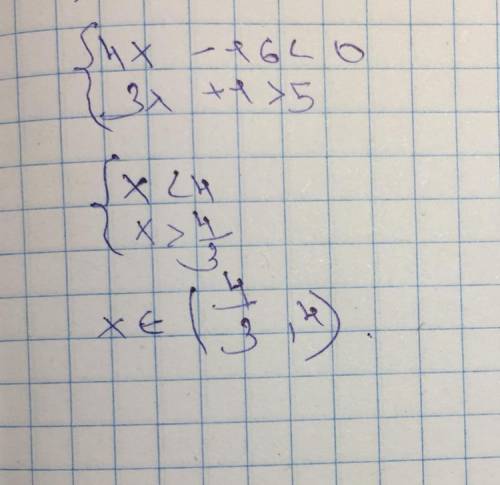 { 4x - 16 < 0
3x + 1 > 5
{ x < 4
x > 4/3
x ∈ (4/3, 4).